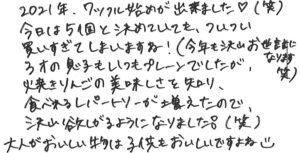 2021年、ワッフル始めが出来ました♡(笑)
今日は5個と決めていても、ついつい
買いすぎてしまいますね!(今年も沢山お世話になります笑)
3才の息子もいつもプレーンでしたが、
焼きりんごの美味しさを知り、
食べれるレパートリーが増えたので、
沢山欲しがるようになりました!!(笑)
大人がおいしい物は子供もおいしいですよね